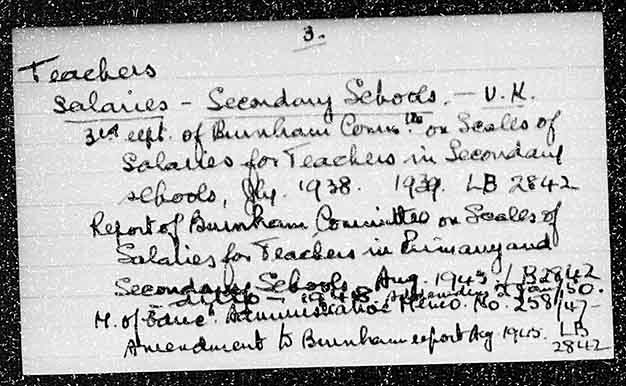 3.
Teachers
Salaries - Secondary Schools. - U.K.
3rd rept. of Burnham Comm.ttee on Scales of
Salaries for Teachers in Secondary
schools, Jly. 1938. 1939. LB 2842
Report of Burnham Committee on Scales of
Salaries for Teachers in Primary and
Secondary Schools, Aug. 1945 LB2842
- ditto - 1948 Jan/50.
M. of Educ. Administrative Memo. No. 258/47-
Amendment to Burnham report Aug 1945. LB
2842